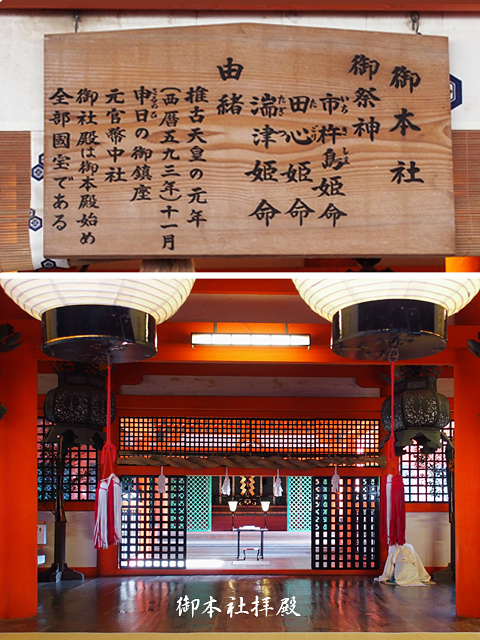 御本社
御祭神
市杵島姫命
いちきしま
田心姫命
たごり
湍津姫命
たぎつ
由緒
推古天皇の元年
(西暦五九三年)十一月
申日の御鎮座
さるのひ
元官幣中社
御社殿は御本殿始め
全部國宝である
御本社拝殿